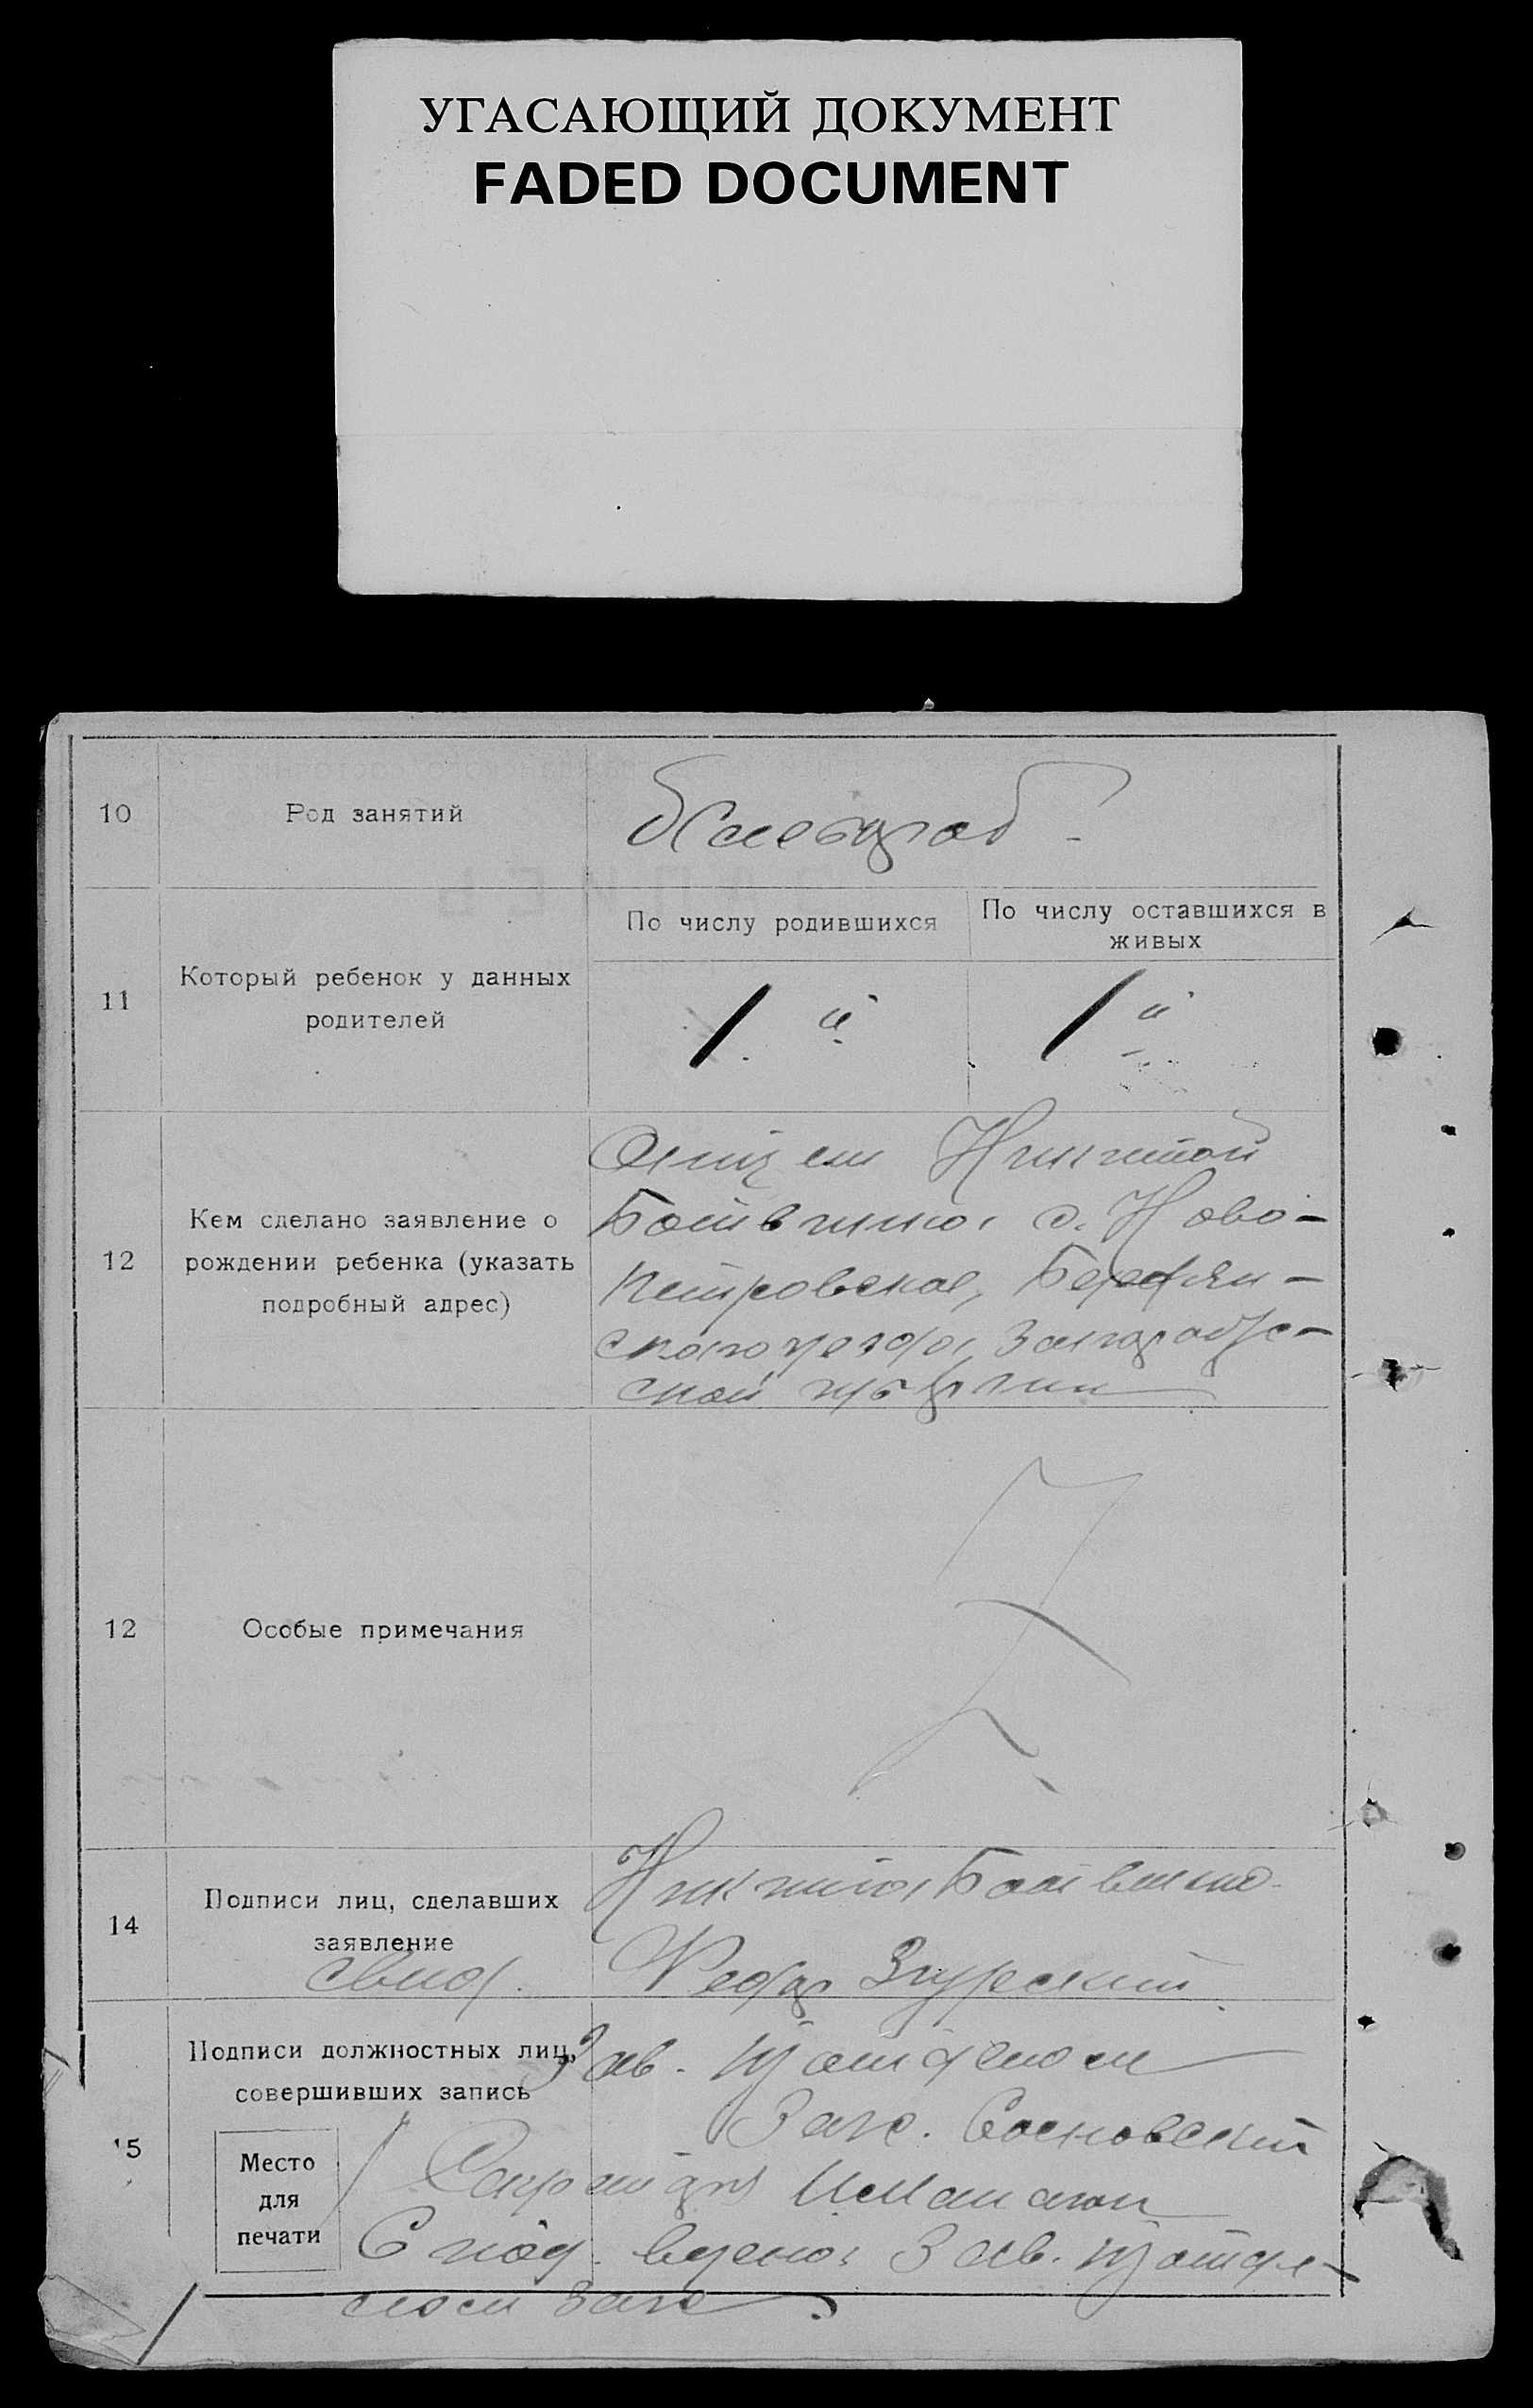 УГАСАЮЩИЙ ДОКУМЕНТ
FADED DOCUMENT
10
Род занятий
Хлебороб -
11
Который ребенок у данных
родителей
По числу родившихся
По числу оставшихся в
живых
1 й
1 й
12
Кем сделано заявление о
рождении ребенка (указать
подробный адрес)
Отцем Никитой
Ботвинно с. Ново-
Петровское, Бердян-
ского уезда, Запорож-
ской губернии
12
Особые примечания
14
Подписи лиц, сделавших
заявление
свид.
Никита Ботвинно
Федор Згурский
15
Подписи должностных лиц,
совершивших запись
Место
для
печати
Зав.
Загс. Сосновский
Секретарь
С под. верно: Зав.
Загс